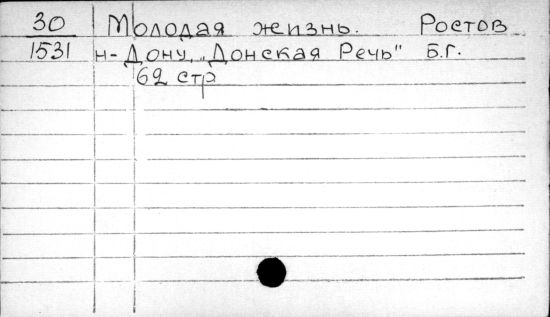 30 Молодая жизнь. Ростов
1531 н-Дону, „Донская Речь" Б.г.
62 стр